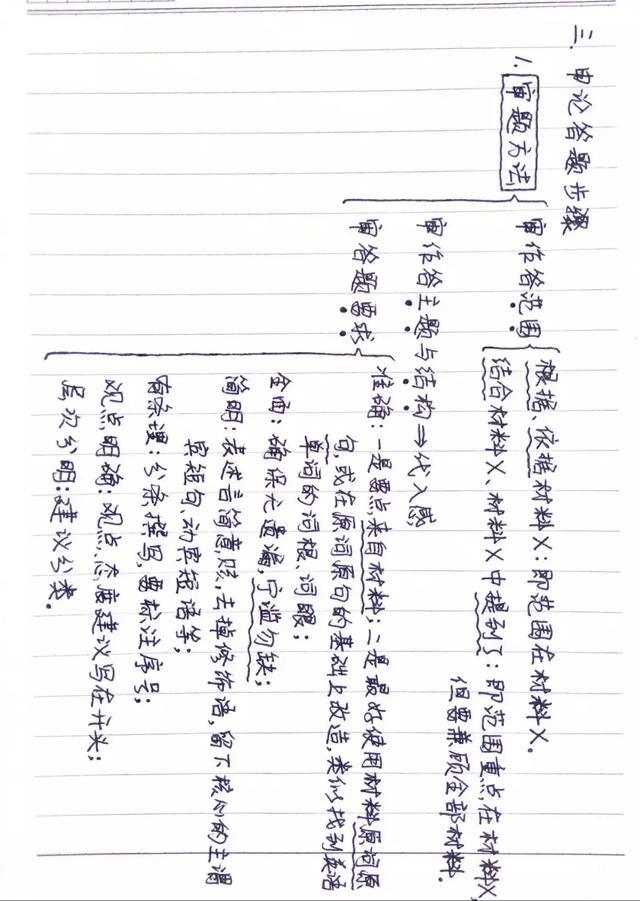 三.申论答题步骤
1.审题方法
审作答范围
根据、依据材料X：即范围在材料X。
结合材料X、材料X中提到了：即范围重点在材料X,
但要兼顾全部材料.
审作答主题与结构⇒代入感
审答题要求
准确：一是要点来自材料；二是最好使用材料原词原
句,或在原词原句的基础上改造,类似找到英语
单词的词根、词眼；
全面：确保无遗漏,宁滥勿缺；
简明：表达言简意赅,去掉修饰语,留下核心的主谓
宾短句、动宾短语等；
有条理：分条撰写,要标注序号；
观点明确：观点、态度建议写在开头；
层次分明：建议分类。